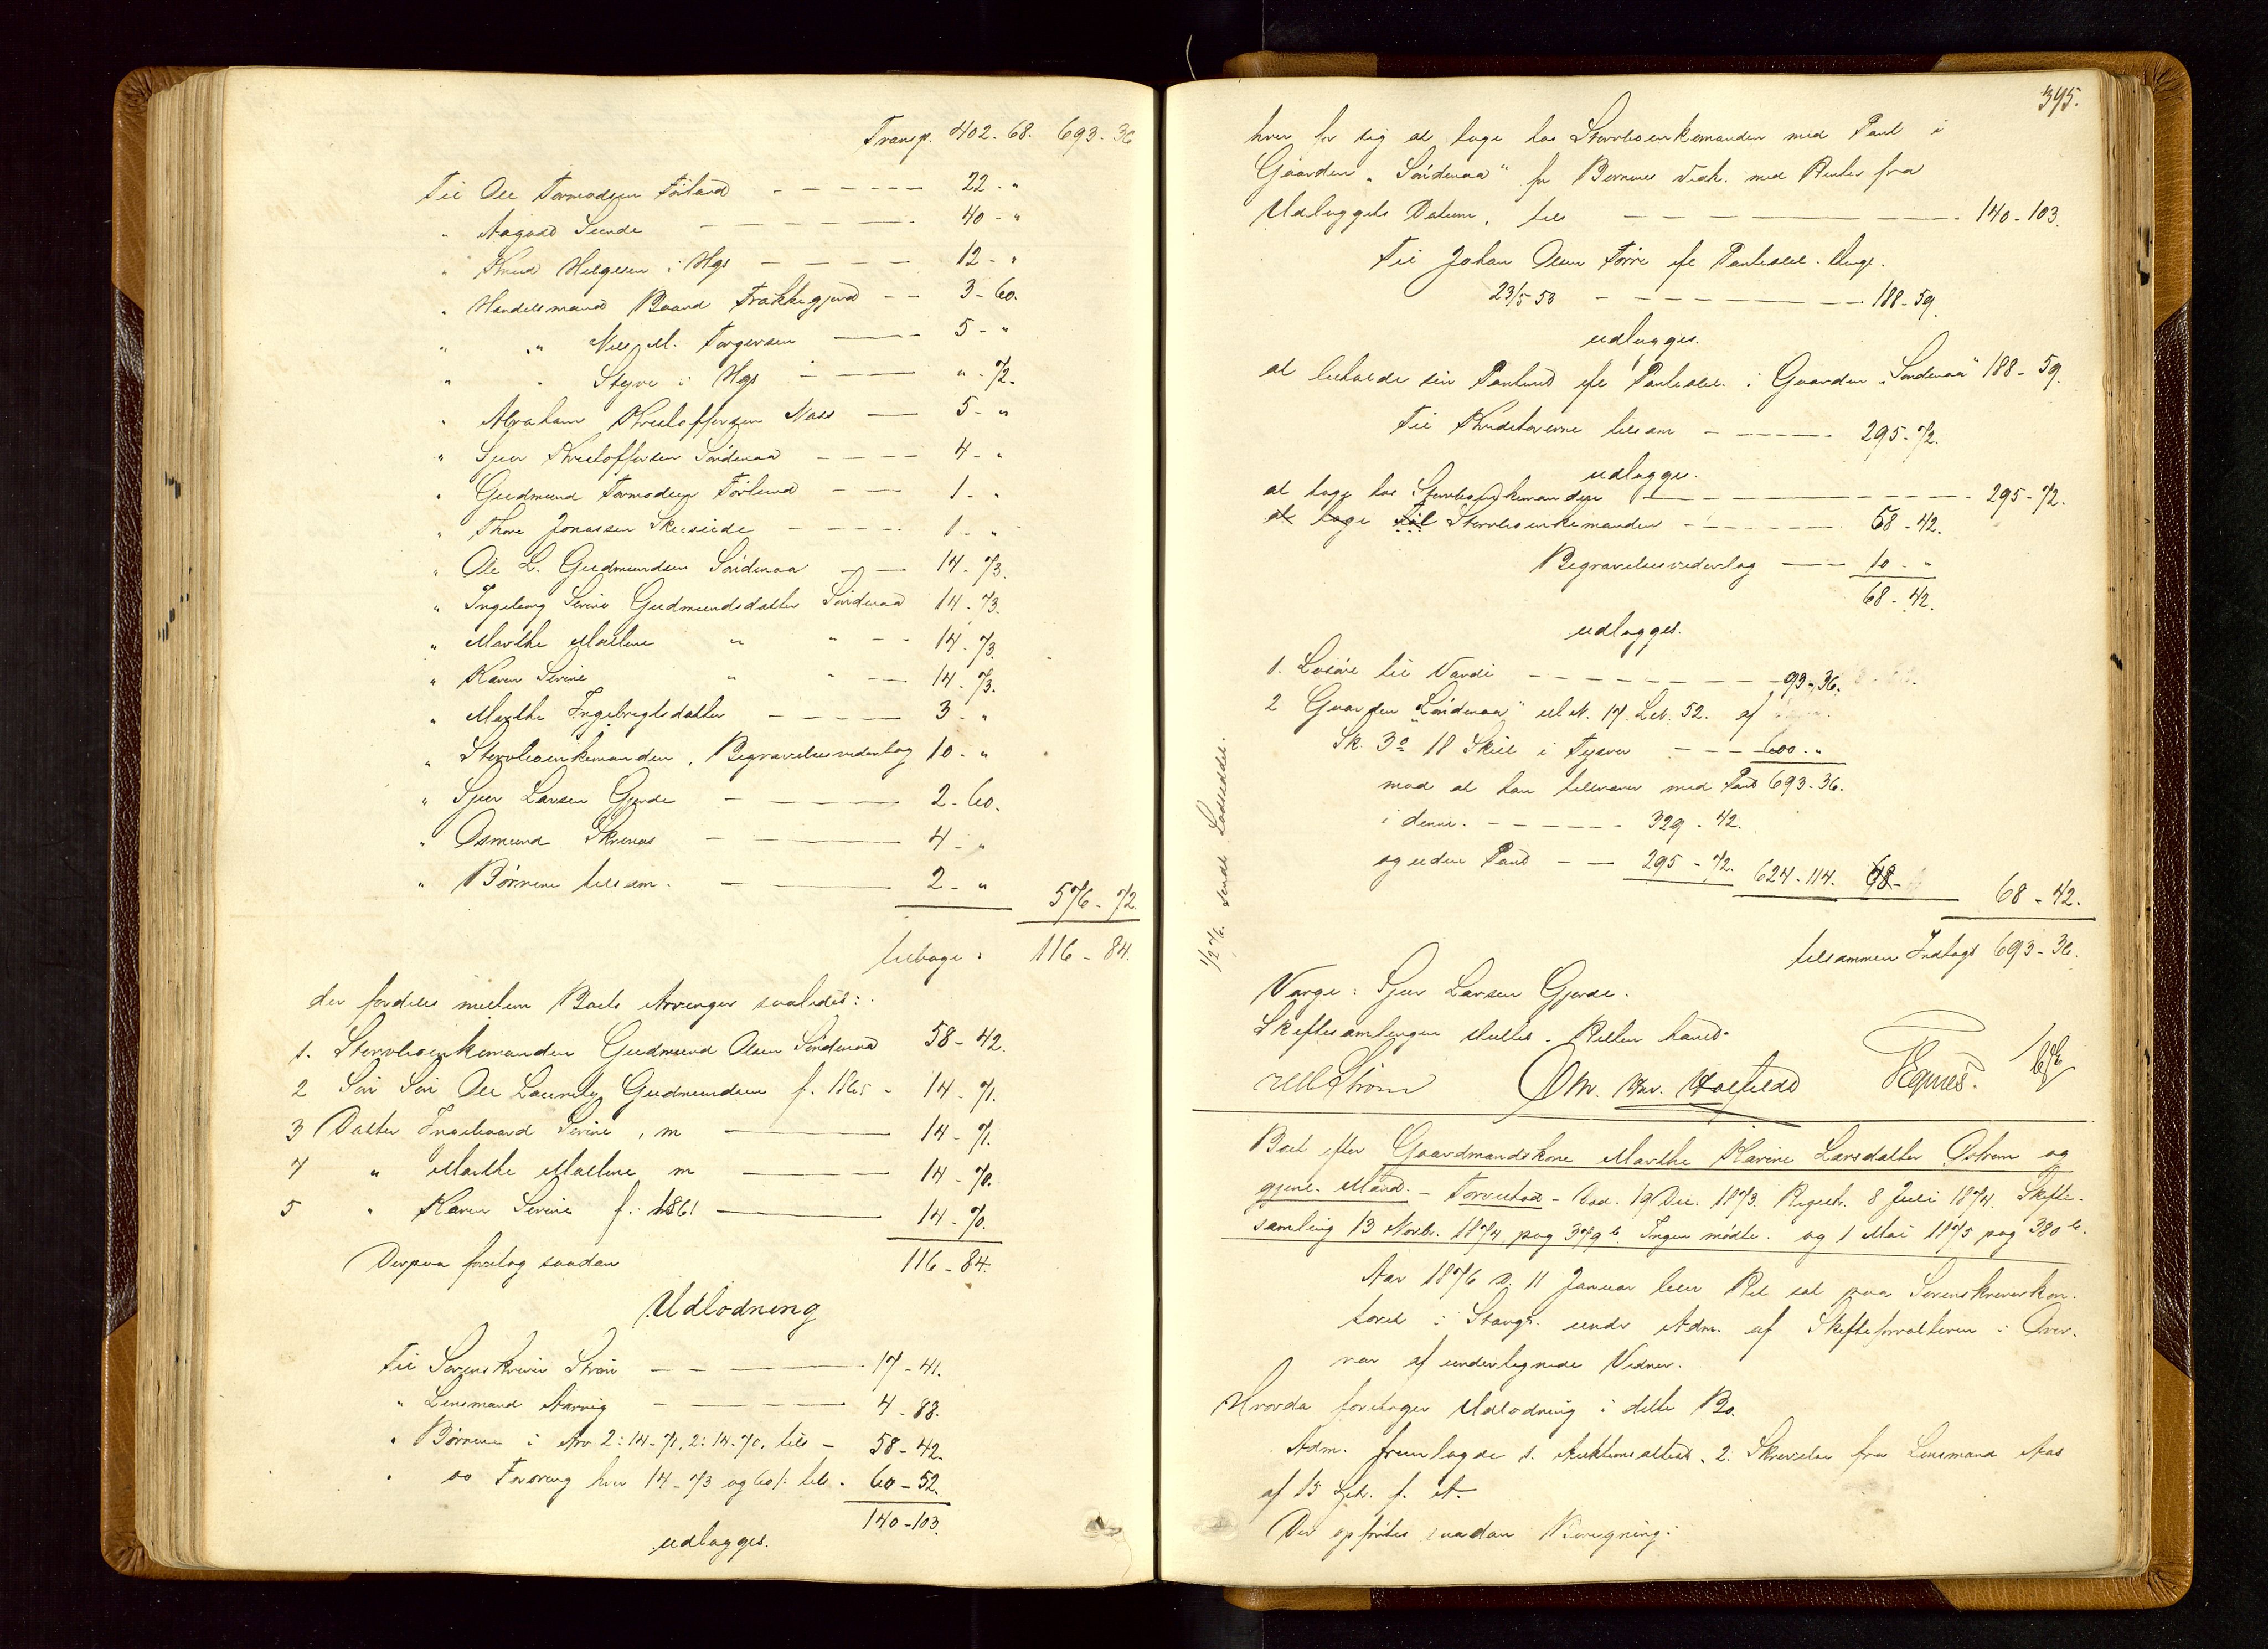 Transp. 402. 68. 693-36
Til Ole Tormodsen Førland - - - - - - 22 - "
" Aagaard Sunde - - - - 40 - "
" Knud Helgesen i Hgs - - - - 12 - "
" Handelsmand Baard Frakkagjerd - - 3 - 60.
" " Niels M. Torgersen - - 5 - "
" " Styve i Hgs - - - " - 72.
" Abraham Kristoffersen Næss - 5 - "
" Sjur Kristoffersen Søndenaa - - - - 4 - "
" Gudmund Tormodsen Førland - - - 1 - "
" Thore Jonassen Skeiseide - - - - 1 - "
" Ole L. Gudmundsen Søndenaa - - 14 - 73.
" Ingeborg Serine Gudmundsdatter Søndenaa 14 - 73.
" Marthe Malene " " - - 14 - 73.
" Karen Serine " " - - 14 - 73.
" Marthe Ingebrigtsdatter - - - - - 3 - "
" Stervboenkemanden, Begravelsesvederlag 10 - "
" Sjur Larsen Gjerde - - - - - 2 - 60.
" Osmund Skrenes - - - 4 - "
" Børnene tilsam. - - - 2 - " 576 - 72.
tilbage : 116 - 84.
der fordeles mellem Boets Arvinger saaledes:
1. Stervboenkemanden Gudmund Olsen Søndenaa 58 - 42.
2 Søn Ole Lauritz Gudmundsen f. 1865 - 14 - 71.
3 Datter Ingeborg Serine, m - - 14 - 71.
4 " Marthe Malene m - - 14 - 70.
5 " Karen Serine f. 1861 - - 14 - 70.
Derpaa foretog saadan 116 - 84.
Udlodning
Til Sorenskriver Strøm - - - - 17 - 41.
" Lensmand Aarvig - - - - - 4 - 88.
" Børnene i Arv 2: 14 - 71, 2: 14 - 70, tils - 58 - 42.
" do Fordring hver 14 - 73 og 60 f: tils. - 60 - 52.
140 - 103.
udlægges.
395.
hver for sig at tage hos Stervboenkemanden med Pant i
Gaarden "Søndenaa" for Børnenes Vedk. med Renter fra
Udlæggets Datum, tils - - - - 140 - 103.
Til Johan Olsen Førre efl Panteobl. thingl.
23/5 53 - - - - - 188 - 59.
udlægges.
at beholde sin Panteret efl Panteobl. i Gaarden "Søndenaa" 188 - 59.
Til Kreditorerne tilsam - - - - - 295 - 72.
udlægges.
at tage hos Stervboenkemanden - - - - 295 - 72.
at tage Til Stervboenkemanden - - - - 58 - 42.
Begravelsesvederlag - - 10 - "
68 - 42.
udlægges.
1. Løsøre til Værdi - - - - - - 93 - 36.
2 Gaarden "Søndenaa" M. N. 17. Lb. 52. af
Sk. 3 o 18 Skill i Tysvær - - - 600 - "
693 - 36.
mod at han tilsvarer med Pant
i denne. - - - - - - 329 - 42.
og uden Pant - - 295 - 72. 624 - 114. 68 - 68 - 42.
tilsammen Indtægt 693 - 36.
Værge: Sjur Larsen Gjerde.
Skiftesamlingen sluttes. Retten hævet.
Strøm
1/2 76. sendt Lodsedder.
Boet efter Gaardmandskone Marthe Karine Larsdatter Østrem og
gjenl. Mand. - Torvestad - Død. 19 Dec. 1873. Registr. 8 Juli 1874. Skifte-
samling 13 Novbr. 1874 pag 379 b. Ingen mødte. og 1 Mai 1875 pag 380 b.
Aar 1876 d. 11 Januar blev Ret sat paa Sorenskriverkon-
toret i Stavgr. under Adm. af Skifteforvalteren i Over-
vær af undertegnede Vidner.
Hvorda foretoges Udlodning i dette Bo.
Adm. fremlagde 1. Auktionsattest. 2. Skrivelse fra Lensmand Aas
af 15 f. A.
Der opførtes saadan Beregning: